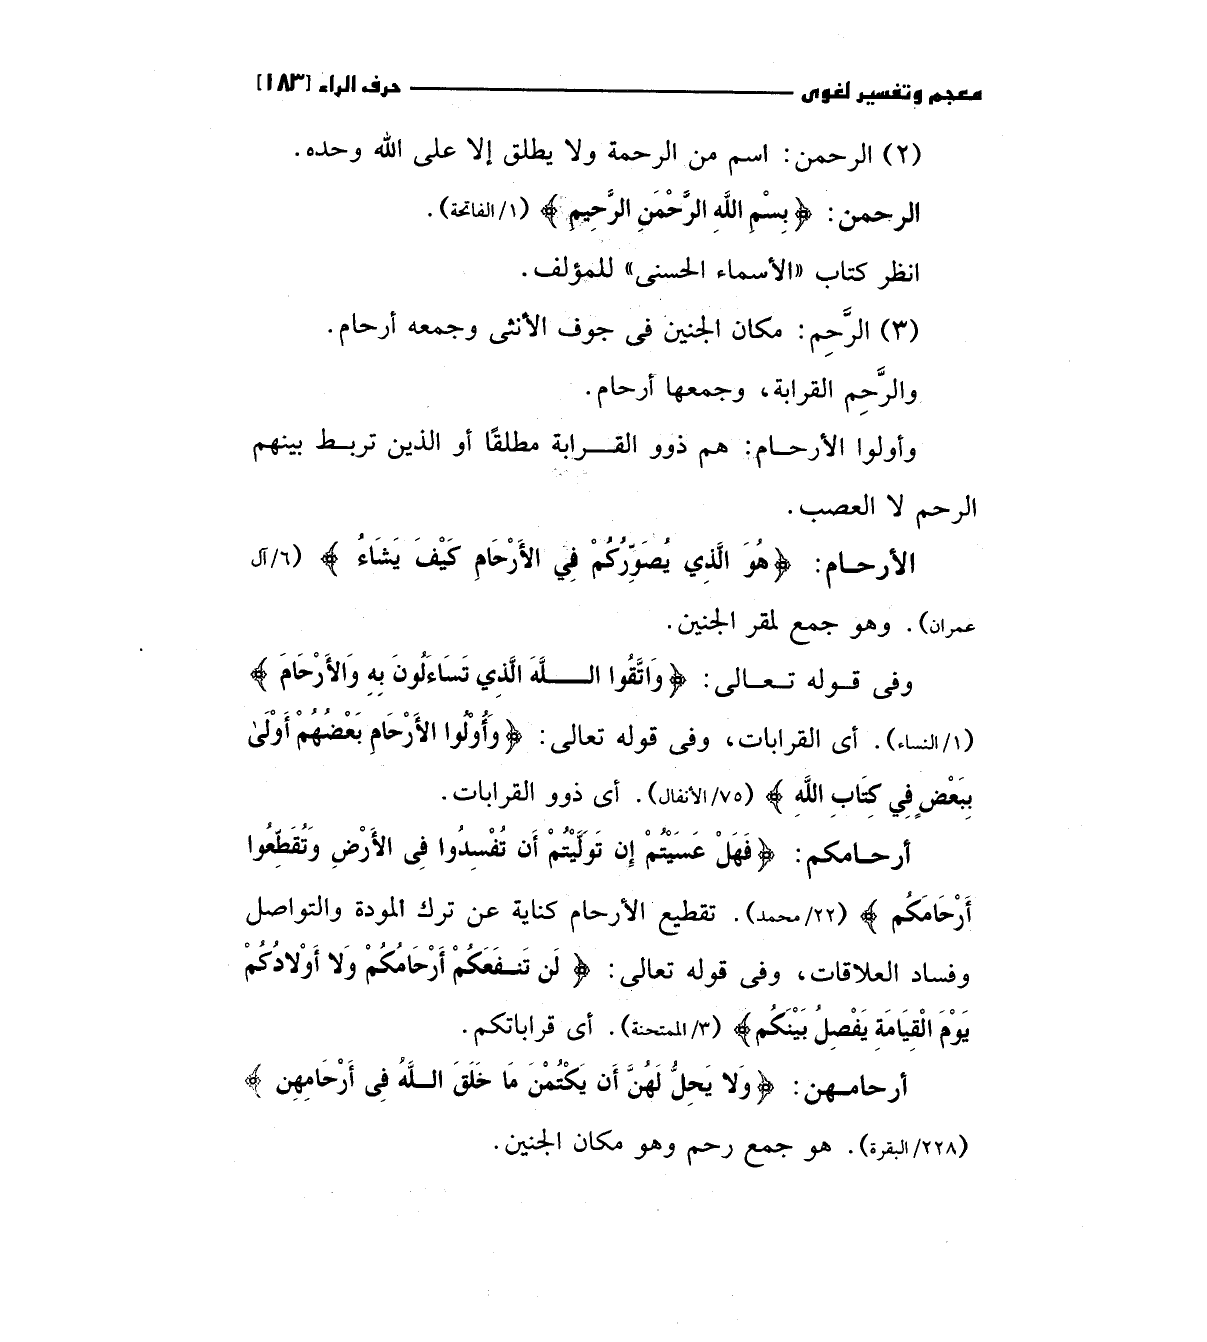 معجم وتفسير لغوى ــــــــ حرف الراء [١٨٣]
(٢) الرحمن: اسم من الرحمة ولا يطلق إلا على الله وحده.
الرحمن: ﴿بِسْمِ اللَّهِ الرَّحْمَنِ الرَّحِيمِ﴾ (١/الفاتحة).
انظر كتاب «الأسماء الحسنى» للمؤلف.
(٣) الرَّحِم: مكان الجنين فى جوف الأنثى وجمعه أرحام.
والرَّحِم القرابة، وجمعها أرحام.
وأولوا الأرحـام: هم ذوو القـــرابة مطلقًا أو الذين تربـط بينهم
الرحم لا العصب.
الأرحـام: ﴿هُوَ الَّذِي يُصَوِّرُكُمْ فِي الأَرْحَامِ كَيْفَ يَشَاءُ﴾ (٦/آل
عمران). وهو جمع لمقر الجنين.
وفى قـوله تـعـالى: ﴿وَاتَّقُوا الــــلَّهَ الَّذِي تَسَاءَلُونَ بِهِ وَالأَرْحَامَ﴾
(١/النساء). أى القرابات، وفى قوله تعالى: ﴿وَأُوْلُوا الأَرْحَامِ بَعْضُهُمْ أَوْلَىٰ
بِبَعْضٍ فِي كِتَابِ اللَّهِ﴾ (٧٥/الأنفال). أى ذوو القرابات.
أرحـامكم: ﴿فَهَلْ عَسَيْتُمْ إِن تَوَلَّيْتُمْ أَن تُفْسِدُوا فِى الأَرْضِ وَتُقَطِّعُوا
أَرْحَامَكُم﴾ (٢٢/محمد). تقطيع الأرحام كناية عن ترك المودة والتواصل
وفساد العلاقات، وفى قوله تعالى: ﴿لَن تَنـفَعَكُمْ أَرْحَامُكُمْ وَلا أَوْلادُكُمْ
يَوْمَ الْقِيَامَةِ يَفْصِلُ بَيْنَكُم﴾ (٣/الممتحنة). أى قراباتكم.
أرحامـهن: ﴿وَلا يَحِلُّ لَهُنَّ أَن يَكْتُمْنَ مَا خَلَقَ الـلَّهُ فِى أَرْحَامِهِن﴾
(٢٢٨/البقرة). هو جمع رحم وهو مكان الجنين.